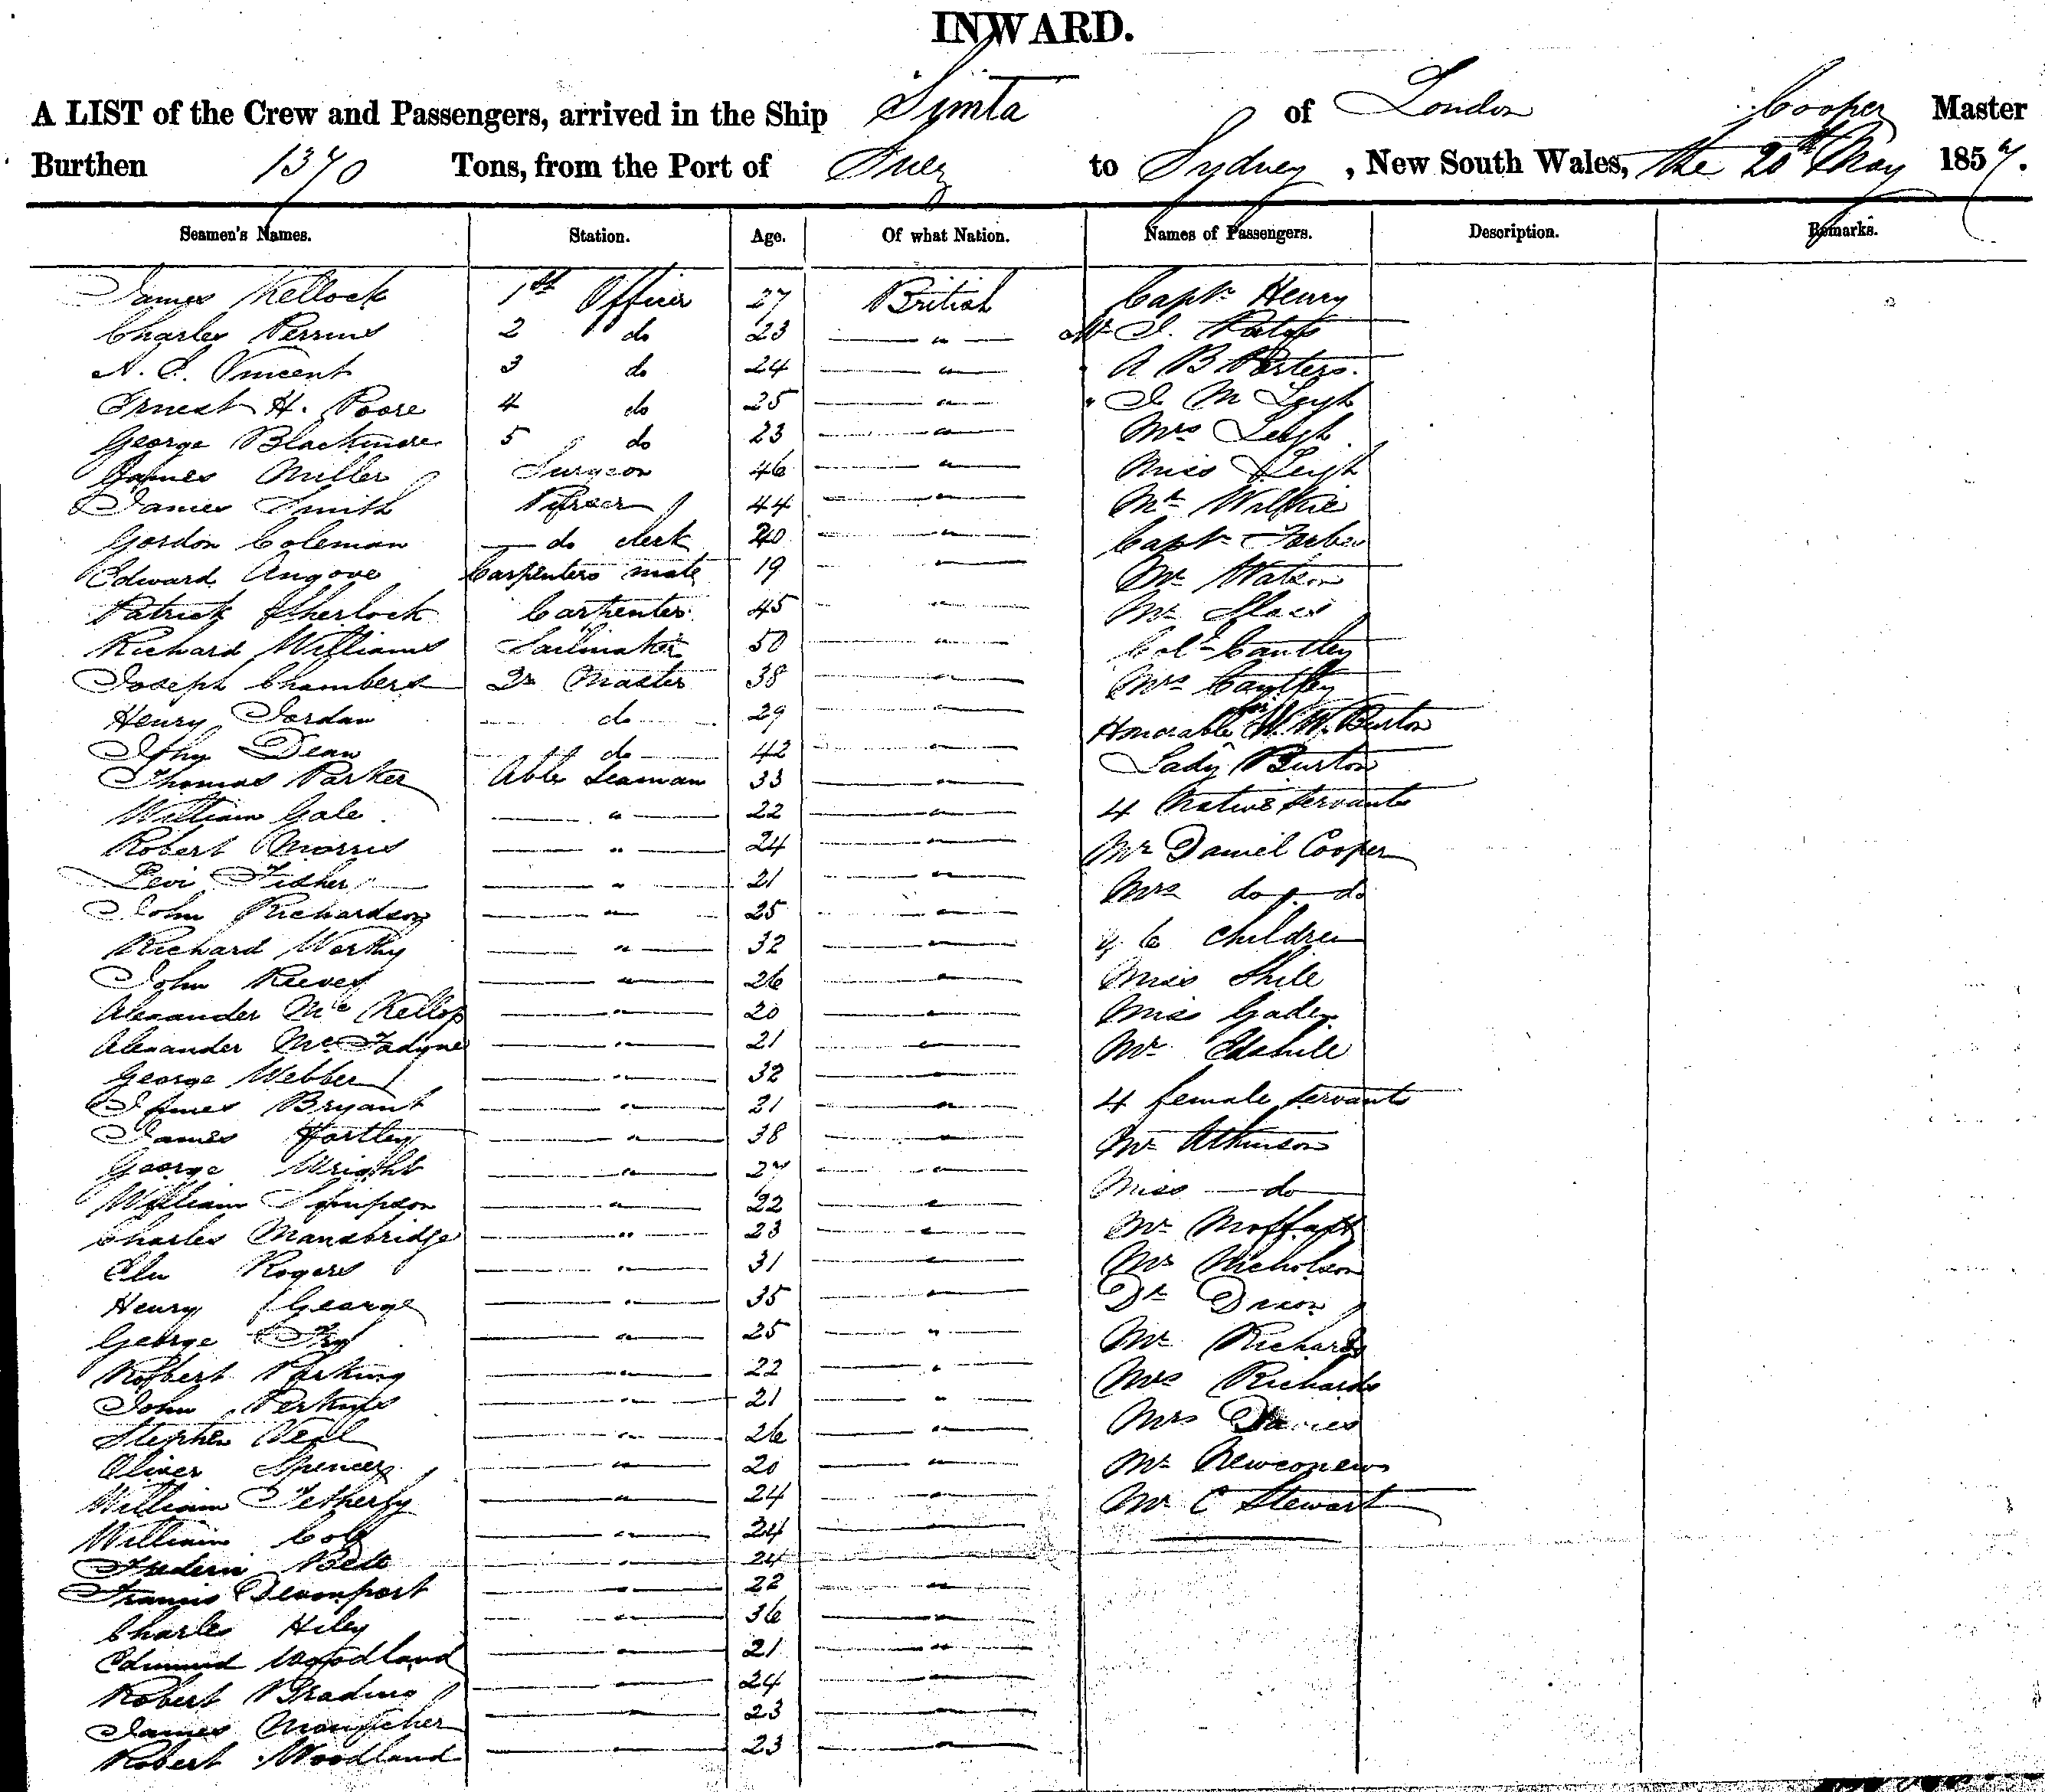 INWARD.
A LIST of the Crew and Passengers, arrived in the Ship Simla of London Cooper Master
Burthen 1370 Tons, from the Port of Suez to Sydney, New South Wales, the 20th May 1857.
Seamen's Names. Station. Age. Of what Nation. Names of Passengers. Description. Remarks.
James Kellock 1st Officer 27 British Captn Henry
Charles Perrins 2 do 23 " Mr J.
A. J. Vincent 3 do 24 " " A B Porters.
Ernest H. Poore 4 do 25 " " J M Leigh
George Blackmore 5 do 23 " Mrs Leigh
James Miller Surgeon 46 " Miss Leigh
James Smith Purser 44 " Mr Wilkie
Gordon Coleman do clerk 20 " Captn Forbes
Edward Angove Carpenters mate 19 " Mr Watson
Patrick Sherlock Carpenter 45 " Mr
Richard Williams Sailmaker 50 " Coln Cautley
Joseph Chambers Qr Master 38 " Mrs Cautley
Henry Jordan do 29 " Honorable Sir W. W. Burton
John Dean do 42 " Lady Burton
Thomas Parker Able Seaman 33 " 4 Native Servants
William Gale " 22 " Mr Daniel Cooper
Robert Morris " 24 "
Levi Fisher " 21 " Mrs do do
John Richardson " 25 "
Richard Worthy " 32 " & 6 children
John Reeves " 26 " Miss Shile
Alexander Mc Kellop " 20 " Miss Gaden
Alexander Mc Fadyne " 21 " Mr
George Webber " 32 "
James Bryant " 21 " 4 female servants
James Hartley " 38 " Mr Atkinson
George Wright " 27 " Miss do
William Simpson " 22 "
Charles Mansbridge " 23 " Mr Moffatt
Rogers " 31 " Mr Nicholson
Henry George " 35 " Dr Dixon
George Fry " 25 " Mr Richards
Robert Parking " 22 " Mrs Richards
John Perkins " 21 " Mrs
Stephen Veal " 26 "
Oliver Spencer " 20 " Mr
William Fetherby " 24 " Mr C Stewart
William Cole " 24 "
Bell " 24 "
Francis Devonport " 22 "
Charles Hiley " 36 "
Edmund Woodland " 21 "
Robert Brading " 24 "
James " 23 "
Robert Woodland " 23 "